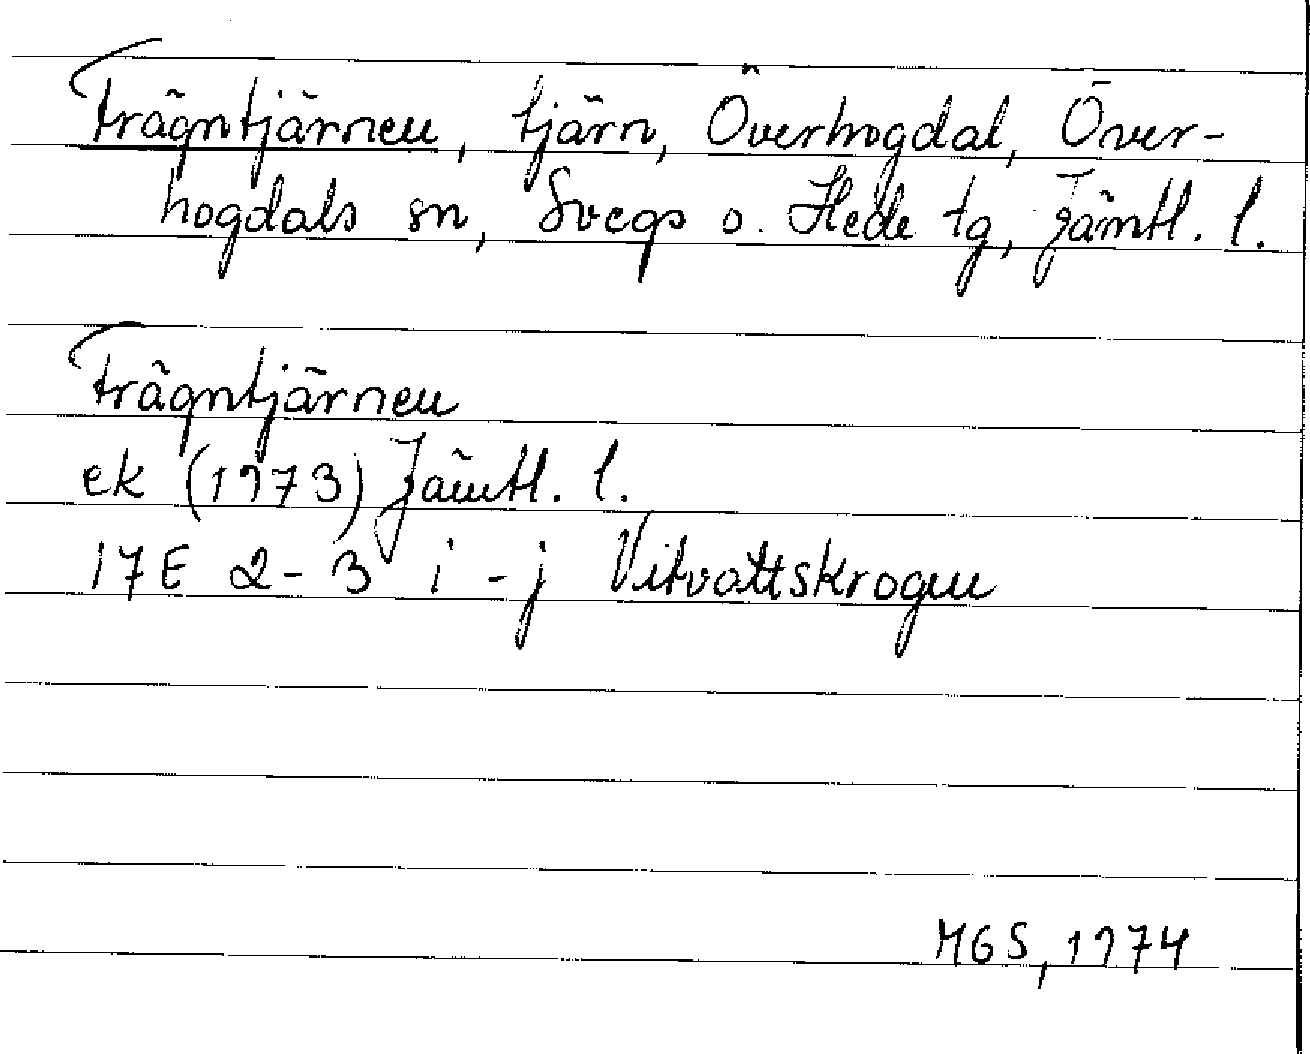 Frägntjärnen, tjärn, Överhogdal, Över-
hogdals sn, Svegs o. Hede tg, Jämtl. l.
Frägntjärnen
ek (1973) Jämtl. l.
17E 2-3 i-j Vitvattskrogen
MGS, 1974